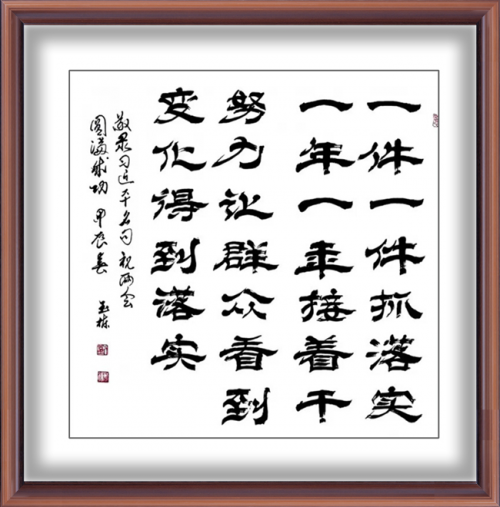 一件一件抓落实
一年一年接着干
努力让群众看到
变化得到落实
敬录习近平名句祝两会
圆满成功 甲辰春 玉栋